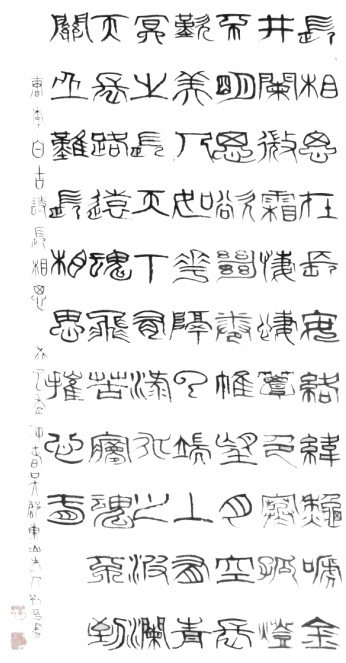 長相思在長安絡緯秋啼金
井闌微霜淒淒簟色寒孤燈
不明思欲絕卷帷望月空長
歎美人如花隔雲端上有青
冥之長天下有淥水之波瀾
天長路遠魂飛苦夢魂不到
關山難長相思摧心肝
唐李白古詩長相思 仲春吳郡東山老人